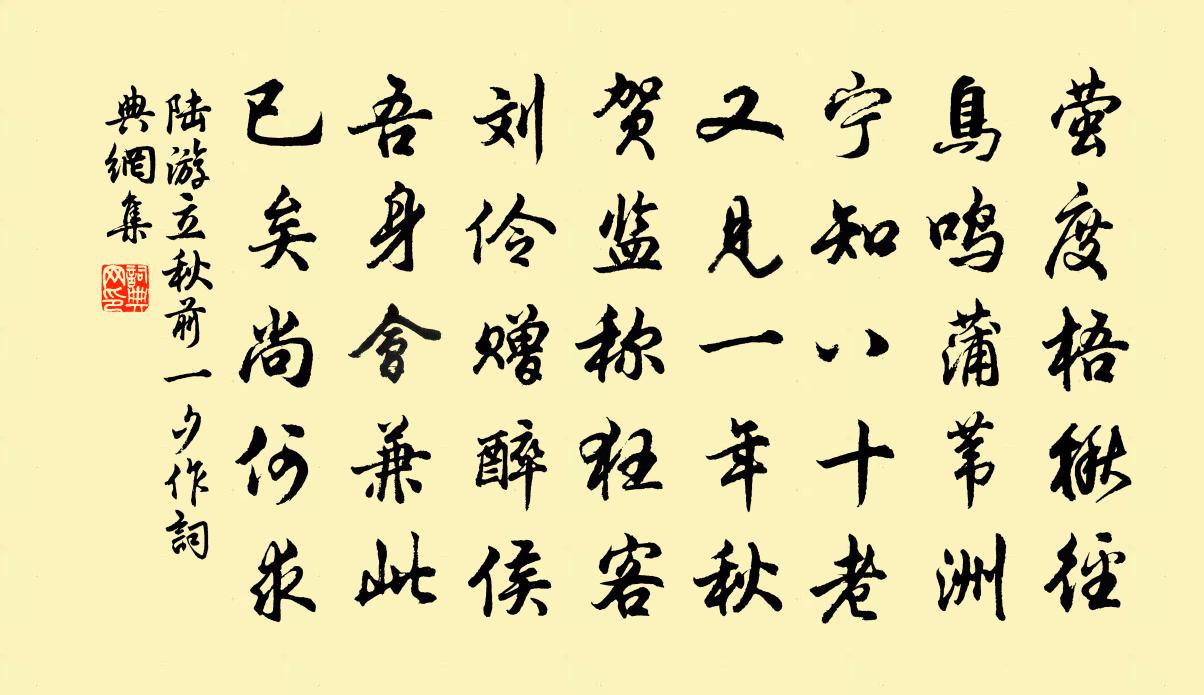 萤度梧楸径
鳥鸣蒲苇洲
宁知八十老
又见一年秋
贺监称狂客
刘伶赠醉侯
吾身會兼此
已矣尚何求
陆游立秋前一夕作詞
典網集
詞典
网印